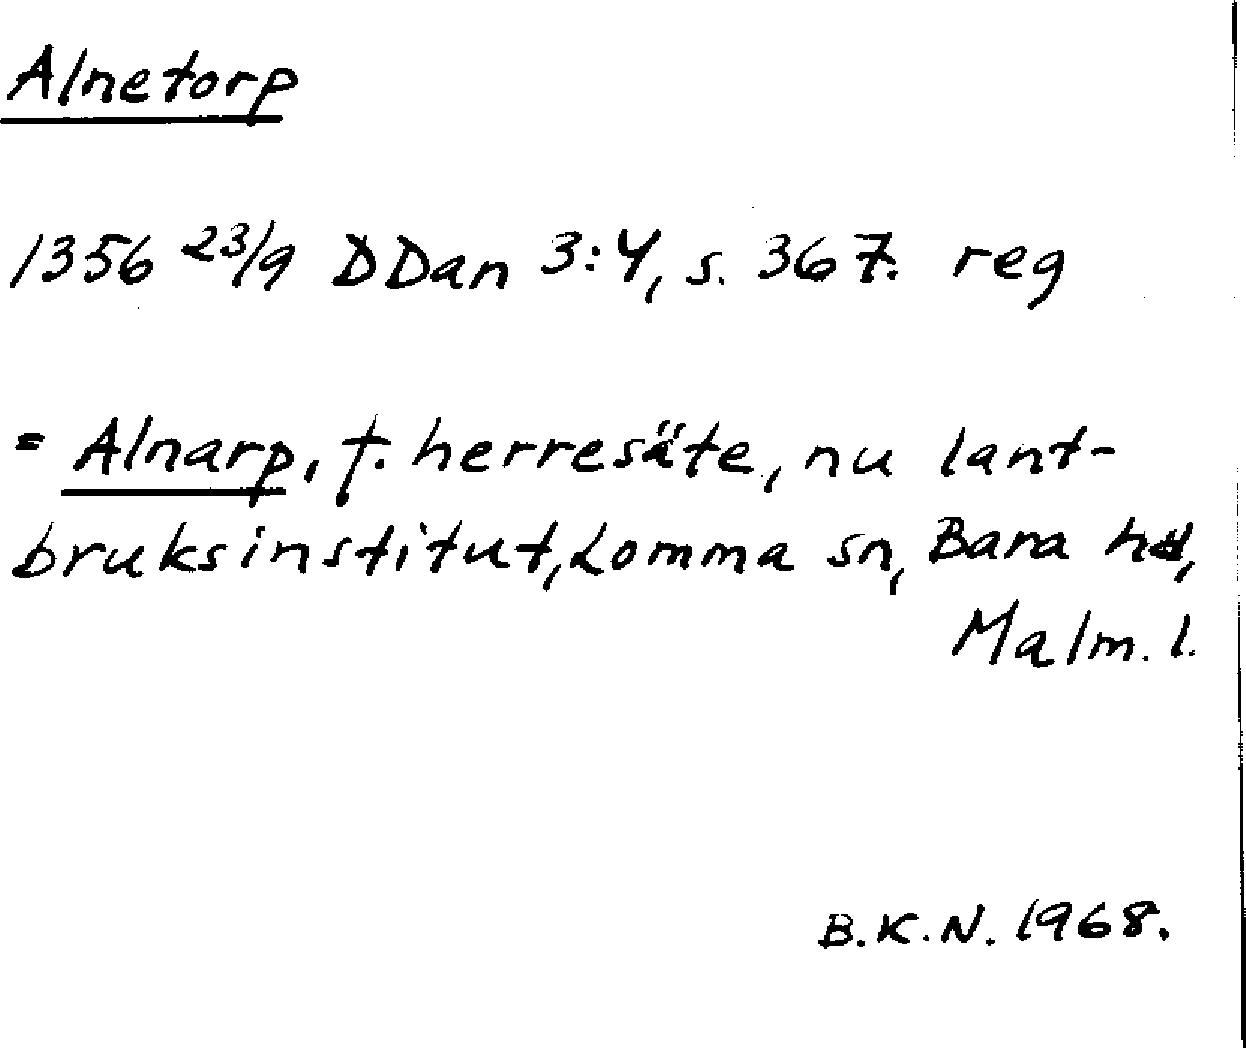 Alnetorp
1356 23/9 DDan 3:4, s. 367. reg
= Alnarp, f. herresäte, nu lant-
bruksinstitut, Lomma sn, Bara hd,
Malm. l.
B.K.N. 1968.